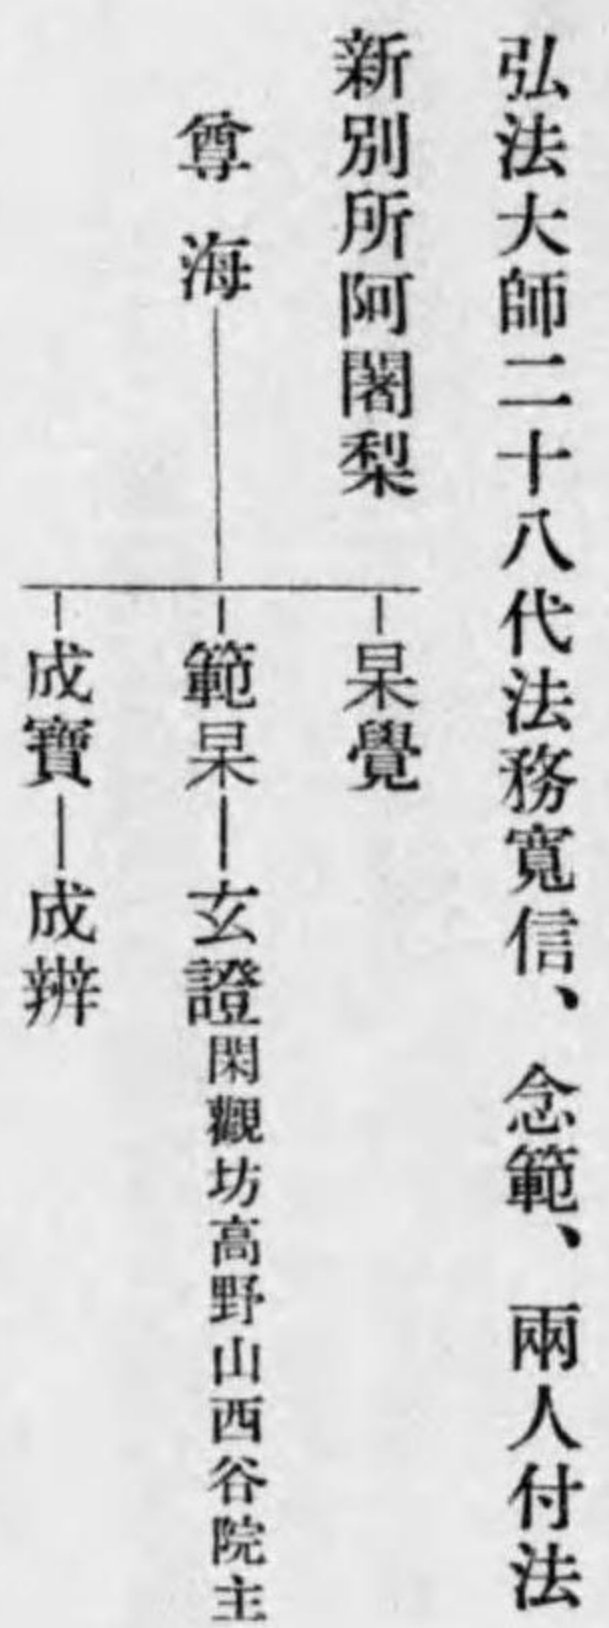 弘法大師二十八代法務寬信、念範、兩人付法
新別所阿闍梨
尊海
杲覺
範杲―玄證閑觀坊高野山西谷院主
成寶―成辨